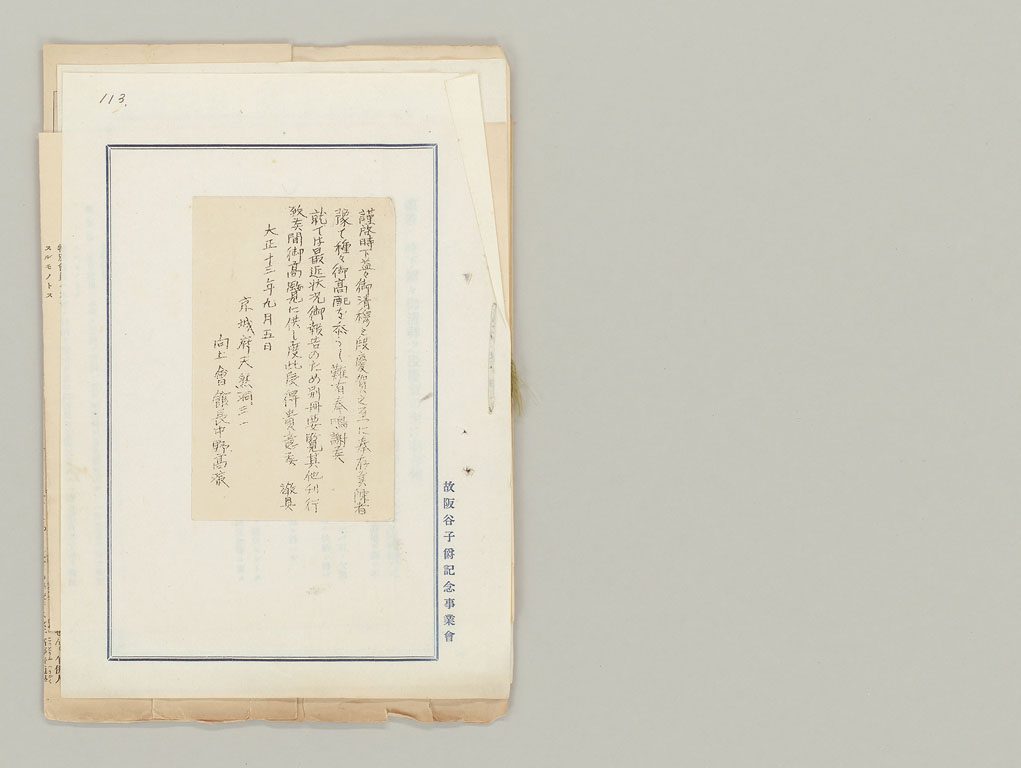 113.
謹啓時下益々御清穆之段慶賀之至に奉存候陳者
豫て種々御高配を忝うし難有奉鳴謝候
就ては最近状況御報告のため別冊要覧其他刊行
致候間御高覧に供し度此段得貴意候 敬具
大正十三年九月五日
京城府天然洞三一
向上會館長中野高
故阪谷子爵記念事業會
スルモノトス